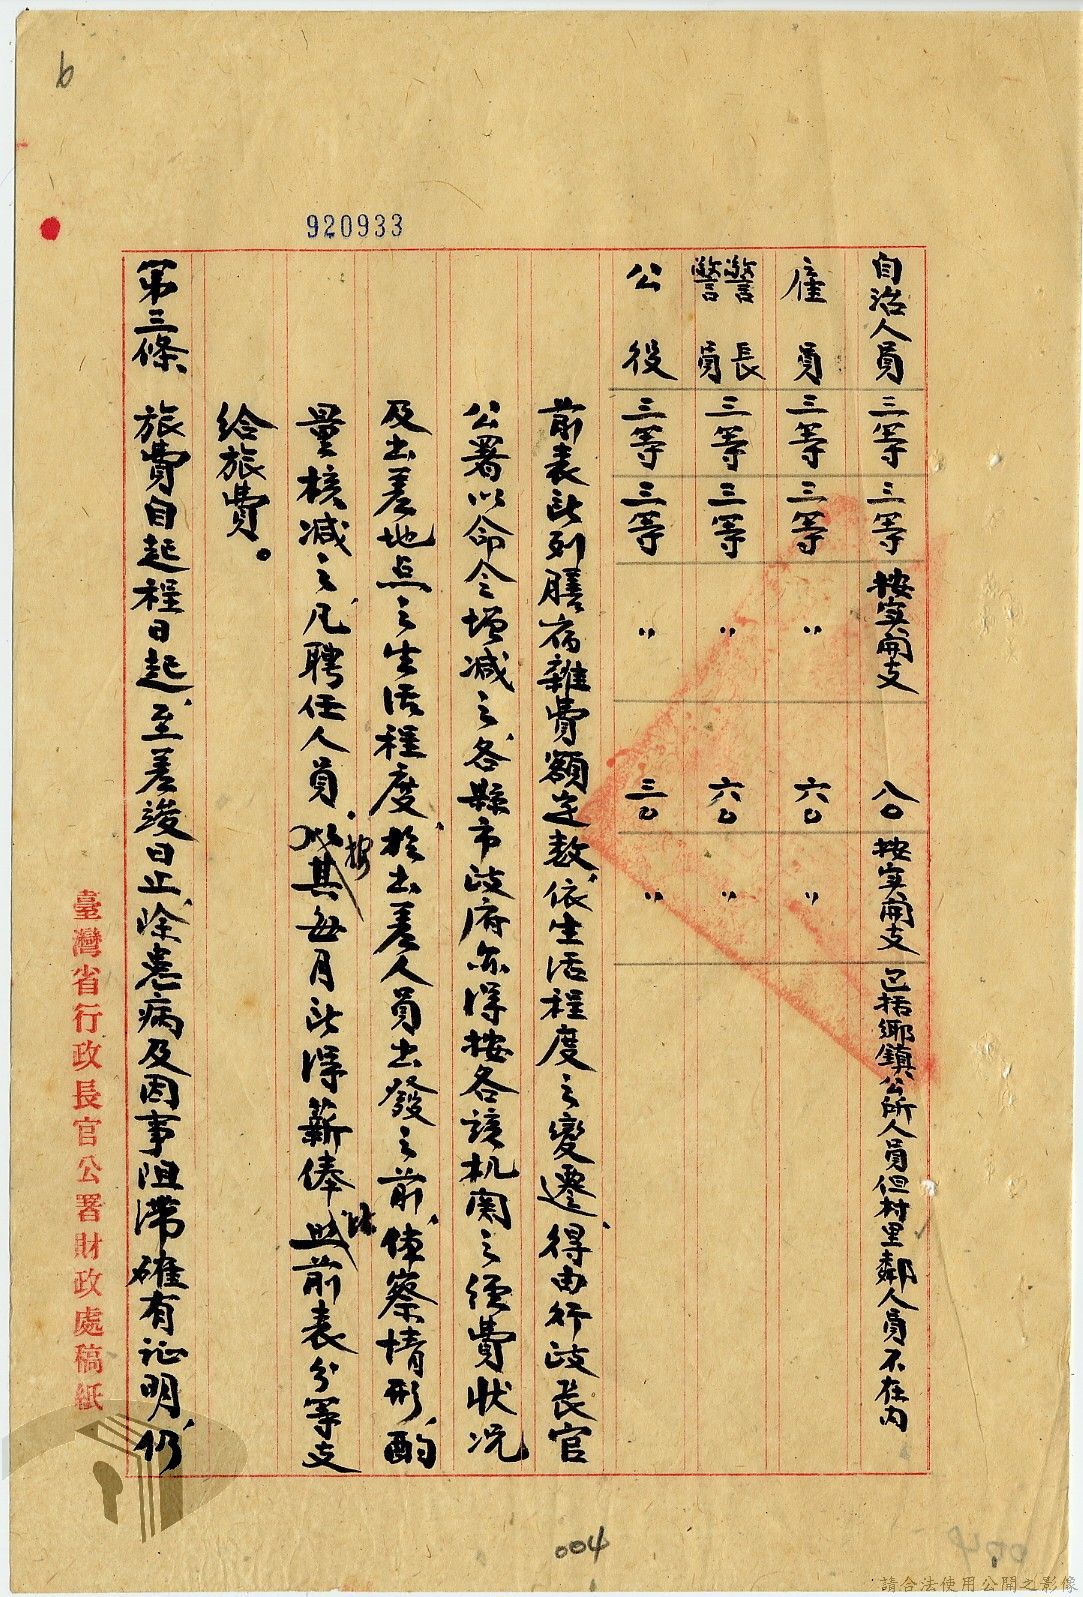 6
920933
自治人員 三等 三等 按実開支 八〇 按実開支 包括鄉鎮公所人員但村里鄰人員不在内
僱員 三等 三等 〃 六〇 〃
警長 警員 三等 三等 〃 六〇 〃
公役 三等 三等 〃 三〇 〃
前表所列膳宿雜費額定数、依生活程度之變遷、得由行政長官
公署以命令增减之、各縣市政府亦得按各該机関之經費狀况
及出差地点之生活程度、於出差人員出發之前、体察情形、酌
量核减之、凡聘任人員、按其每月所得薪俸、比照前表分等支
給旅費。
第三條 旅費自起程日起、至差竣日止、除患病及因事阻滯確有证明、仍
臺灣省行政長官公署財政處稿紙
004
請合法使用公開之影像